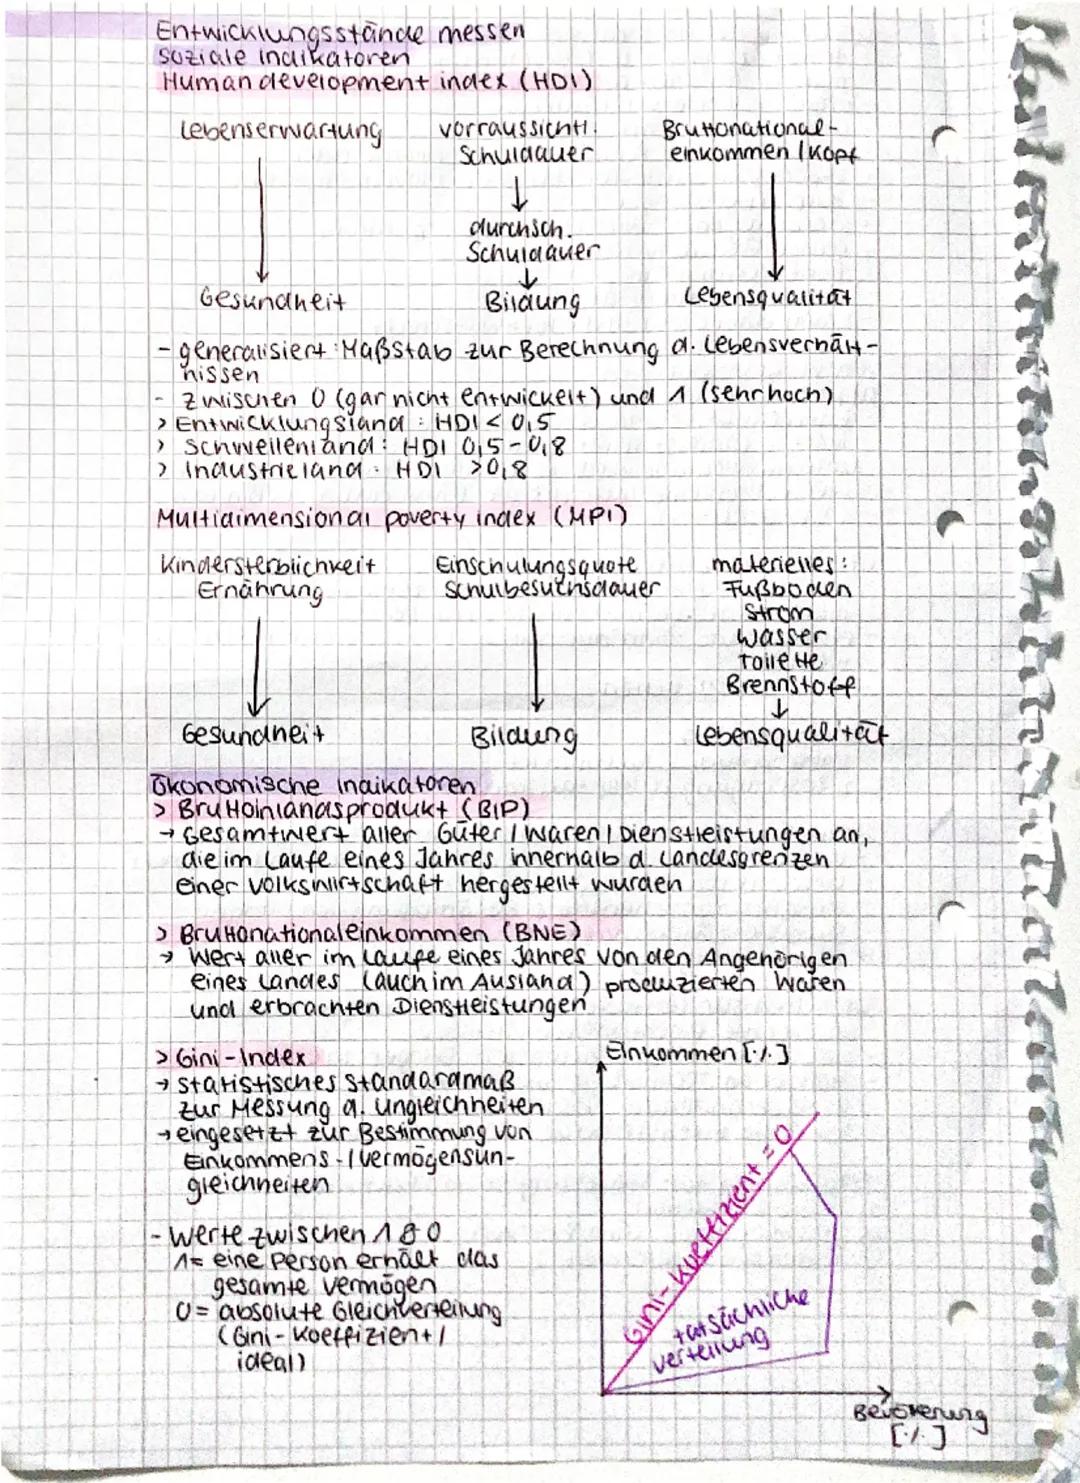 Entwicklungsstände messen
Soziale Indikatoren
Human development index (HDI)
Lebenserwartung
vorraussichtl.
Schuldauer
Bruttonational-
einkommen / Kopf
durchsch.
Schuldauer
Gesundheit
Bildung
Lebensqualität
- generalisiert: Maßstab zur Berechnung d. Lebensverhält-
nissen
- zwischen 0 (gar nicht entwickelt) und 1 (sehr hoch)
> Entwicklungsland : HDI < 0,5
> Schwellenland : HDI 0,5-0,8
> Industrieland : HDI >0,8
Multidimensional poverty index (MPI)
Kindersterblichkeit
Ernährung
Einschulungsquote
Schulbesuchsdauer
materielles:
Fußboden
Strom
Wasser
Toilette
Brennstoff
Gesundheit
Bildung
Lebensqualität
Ökonomische Indikatoren
> Bruttoinlandsprodukt (BIP)
→ Gesamtwert aller Güter / Waren / Dienstleistungen an,
die im Laufe eines Jahres innerhalb d. Landesgrenzen
einer Volkswirtschaft hergestellt wurden
> Bruttonationaleinkommen (BNE)
→ Wert aller im Laufe eines Jahres von den Angehörigen
eines Landes (auch im Ausland) produzierten Waren
und erbrachten Dienstleistungen
> Gini-Index
→ statistisches Standardmaß
zur Messung d. Ungleichheiten
→ eingesetzt zur Bestimmung von
Einkommens-/Vermögensun-
gleichheiten
- Werte zwischen 1 & 0
1= eine Person erhält das
gesamte Vermögen
0= absolute Gleichverteilung
(Gini-Koeffizient /
ideal)
Einkommen [%]
Gini-Koeffizient = 0
tatsächliche
verteilung
Bevölkerung
[%]